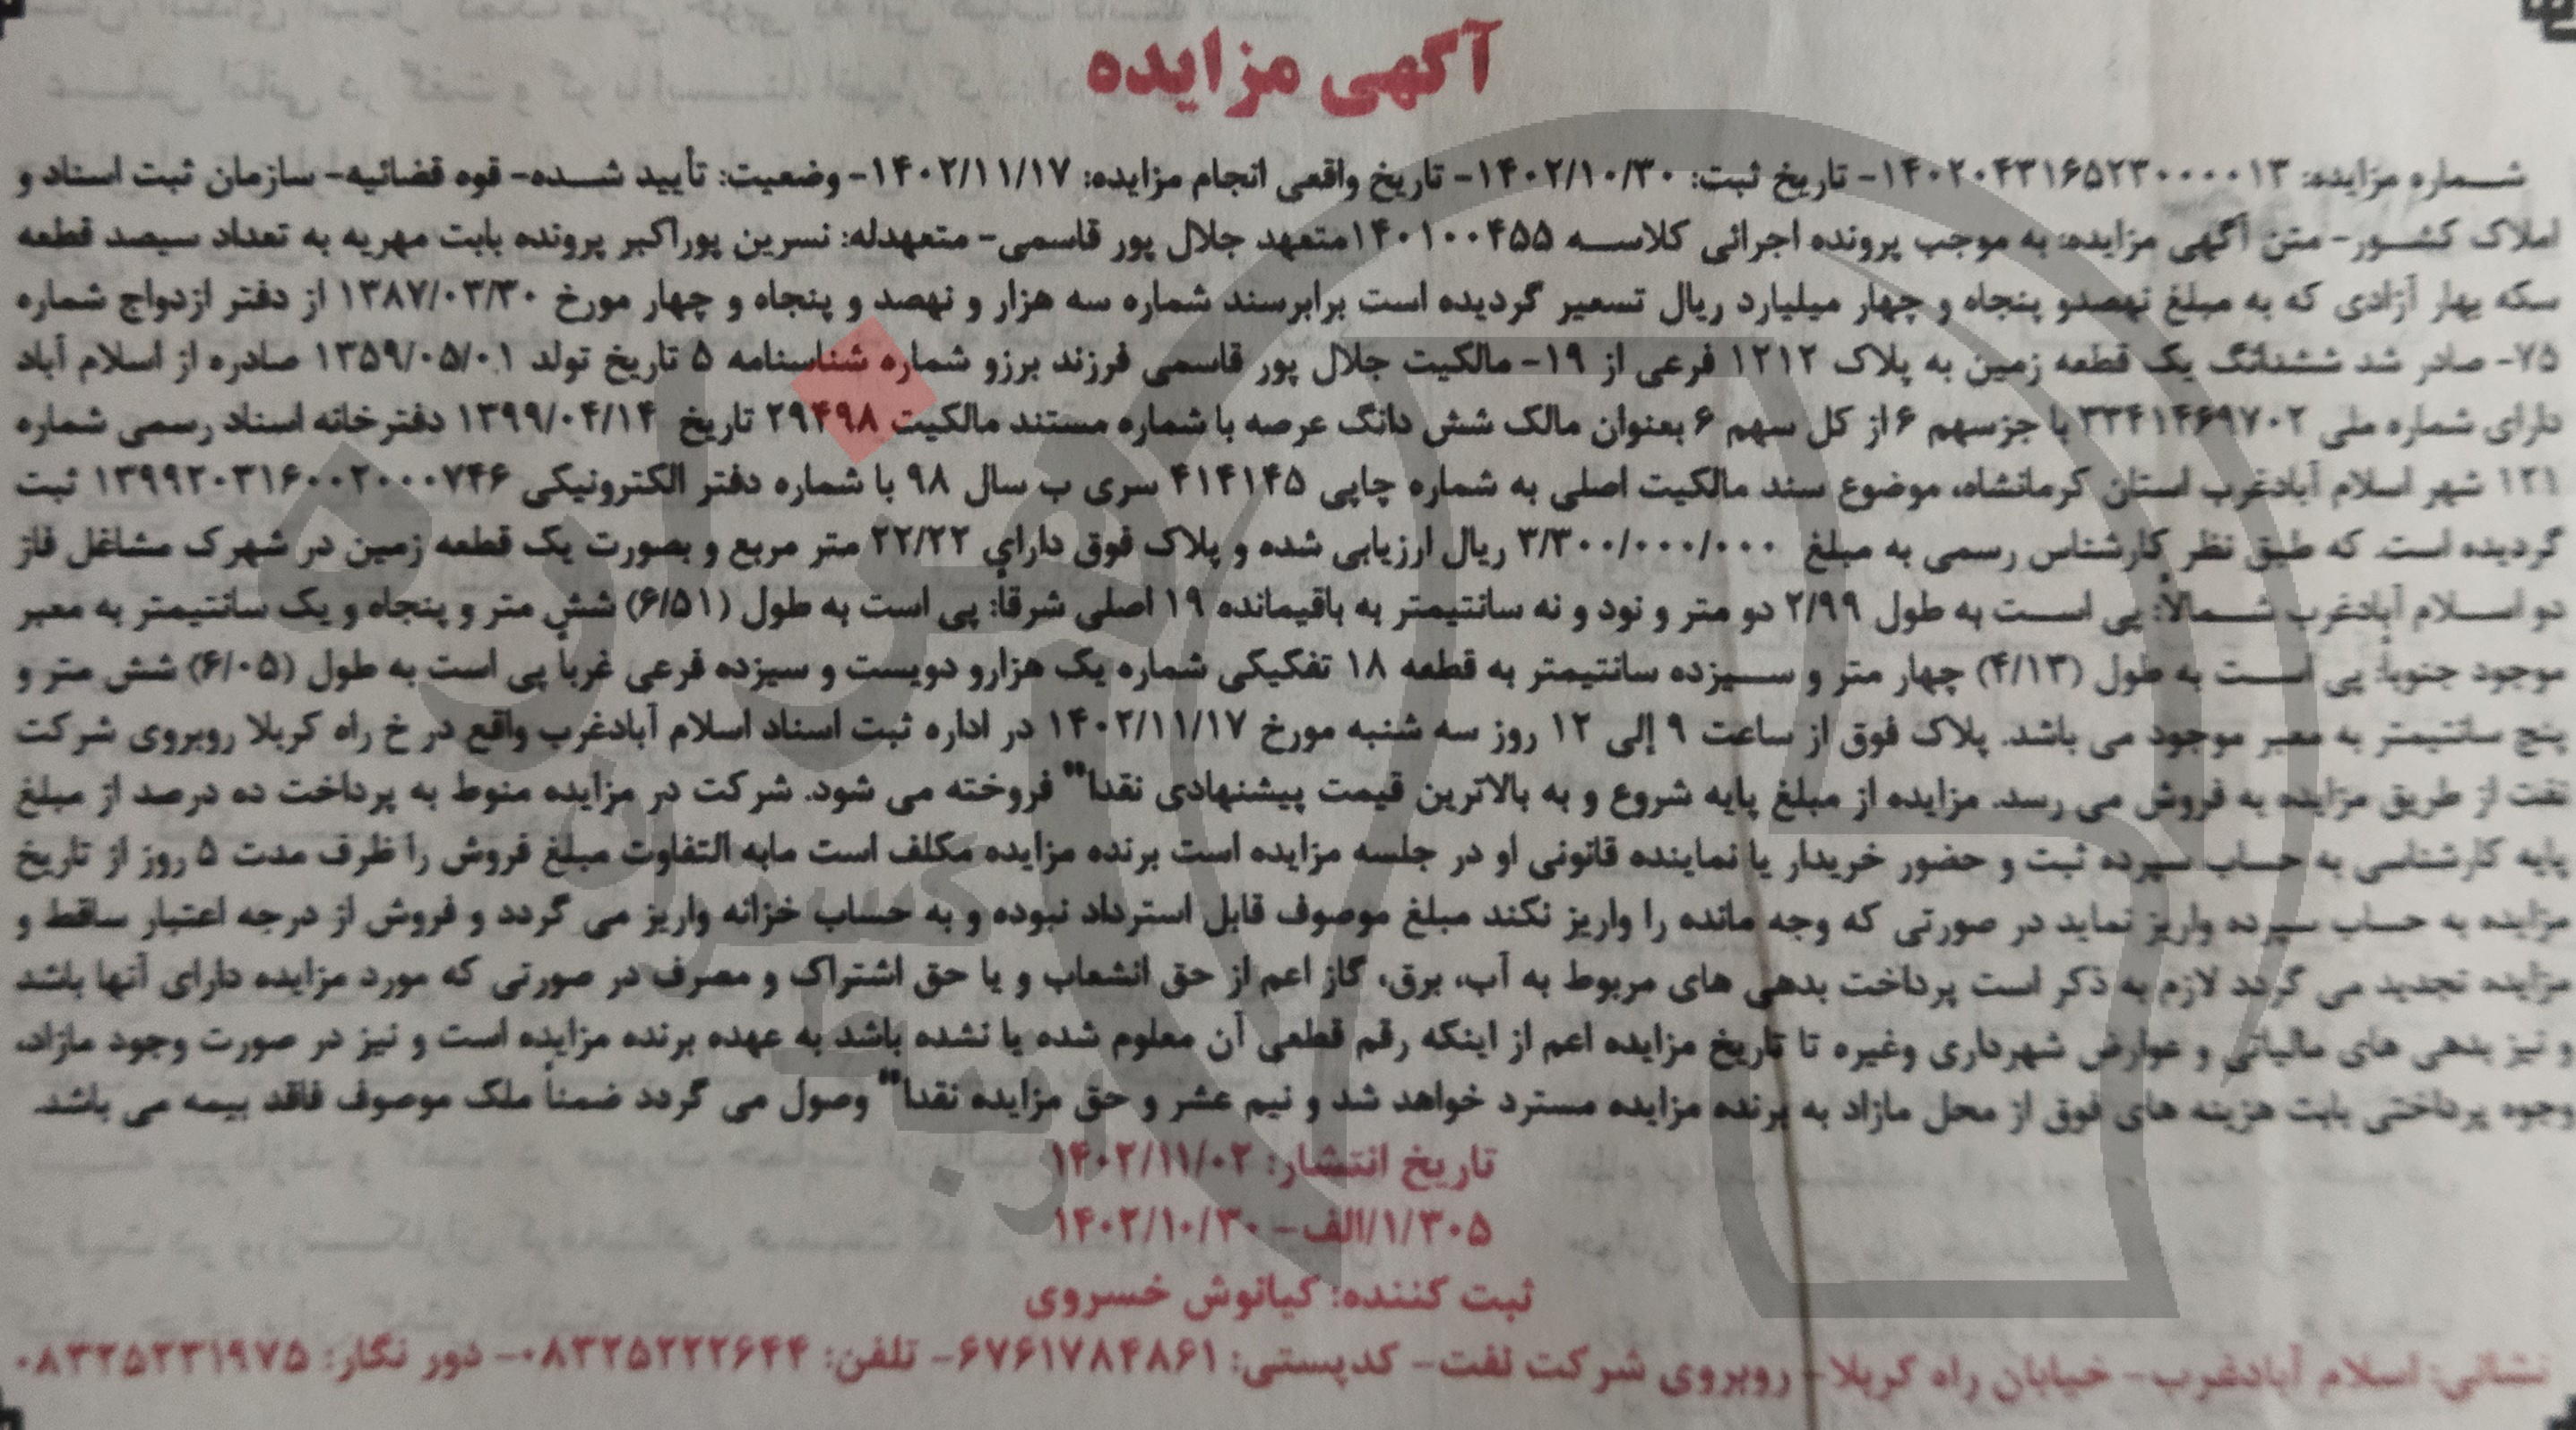 آگهی مزایده
شماره مزایده: ۱۴۰۲۰۴۳۱۶۵۲۳۰۰۰۰۱۳- تاریخ ثبت: ۱۴۰۲/۱۰/۳۰- تاریخ واقعی انجام مزایده: ۱۴۰۲/۱۱/۱۷- وضعیت: تأیید شده- قوه قضائیه- سازمان ثبت اسناد و
املاک کشور- متن آگهی مزایده: به موجب پرونده اجرائی کلاسه ۱۴۰۱۰۰۴۵۵متعهد جلال پور قاسمی- متعهدله: نسرین پوراکبر پرونده بابت مهریه به تعداد سیصد قطعه
سکه بهار آزادی که به مبلغ نهصدو پنجاه و چهار میلیارد ریال تسعیر گردیده است برابرسند شماره سه هزار و نهصد و پنجاه و چهار مورخ ۱۳۸۷/۰۳/۳۰ از دفتر ازدواج شماره
۷۵- صادر شد ششدانگ یک قطعه زمین به پلاک ۱۲۱۲ فرعی از ۱۹- مالکیت جلال پور قاسمی فرزند برزو شماره شناسنامه ۵ تاریخ تولد ۱۳۵۹/۰۵/۰۱ صادره از اسلام آباد
دارای شماره ملی ۳۳۴۱۴۶۹۷۰۲ با جزسهم ۶ از کل سهم ۶ بعنوان مالک شش دانگ عرصه با شماره مستند مالکیت ۲۹۴۹۸ تاریخ ۱۳۹۹/۰۴/۱۴ دفترخانه اسناد رسمی شماره
۱۲۱ شهر اسلام آبادغرب استان کرمانشاه، موضوع سند مالکیت اصلی به شماره چاپی ۴۱۴۱۴۵ سری ب سال ۹۸ با شماره دفتر الکترونیکی ۱۳۹۹۲۰۳۱۶۰۰۲۰۰۰۷۴۶ ثبت
گردیده است. که طبق نظر کارشناس رسمی به مبلغ ۳/۳۰۰/۰۰۰/۰۰۰ ریال ارزیابی شده و پلاک فوق دارای ۲۲/۲۲ متر مربع و بصورت یک قطعه زمین در شهرک مشاغل فاز
دو اسلام آبادغرب شمالاً: پی است به طول ۲/۹۹ دو متر و نود و نه سانتیمتر به باقیمانده ۱۹ اصلی شرقاً: پی است به طول (۶/۵۱) شش متر و پنجاه و یک سانتیمتر به معبر
موجود جنوباً: پی است به طول (۴/۱۳) چهار متر و سیزده سانتیمتر به قطعه ۱۸ تفکیکی شماره یک هزارو دویست و سیزده فرعی غرباً پی است به طول (۶/۰۵) شش متر و
پنج سانتیمتر به معبر موجود می باشد. پلاک فوق از ساعت ۹ إلی ۱۲ روز سه شنبه مورخ ۱۴۰۲/۱۱/۱۷ در اداره ثبت اسناد اسلام آبادغرب واقع در خ راه کربلا روبروی شرکت
نفت از طریق مزایده به فروش می رسد. مزایده از مبلغ پایه شروع و به بالاترین قیمت پیشنهادی نقدا" فروخته می شود. شرکت در مزایده منوط به پرداخت ده درصد از مبلغ
پایه کارشناسی به حساب سپرده ثبت و حضور خریدار یا نماینده قانونی او در جلسه مزایده است برنده مزایده مکلف است مابه التفاوت مبلغ فروش را ظرف مدت ۵ روز از تاریخ
مزایده به حساب سپرده واریز نماید در صورتی که وجه مانده را واریز نکند مبلغ موصوف قابل استرداد نبوده و به حساب خزانه واریز می گردد و فروش از درجه اعتبار ساقط و
مزایده تجدید می گردد لازم به ذکر است پرداخت بدهی های مربوط به آب، برق، گاز اعم از حق انشعاب و یا حق اشتراک و مصرف در صورتی که مورد مزایده دارای آنها باشد
و نیز بدهی های مالیاتی و عوارض شهرداری وغیره تا تاریخ مزایده اعم از اینکه رقم قطعی آن معلوم شده یا نشده باشد به عهده برنده مزایده است و نیز در صورت وجود مازاد،
وجوه پرداختی بابت هزینه های فوق از محل مازاد به برنده مزایده مسترد خواهد شد و نیم عشر و حق مزایده نقدا" وصول می گردد ضمناً ملک موصوف فاقد بیمه می باشد.
تاریخ انتشار: ۱۴۰۲/۱۱/۰۲
۱/۳۰۵/الف- ۱۴۰۲/۱۰/۳۰
ثبت کننده: کیانوش خسروی
نشانی: اسلام آبادغرب- خیابان راه کربلا- روبروی شرکت نفت- کدپستی: ۶۷۶۱۷۸۴۸۶۱- تلفن: ۰۸۳۲۵۲۲۲۶۴۴- دور نگار: ۰۸۳۲۵۲۳۱۹۷۵